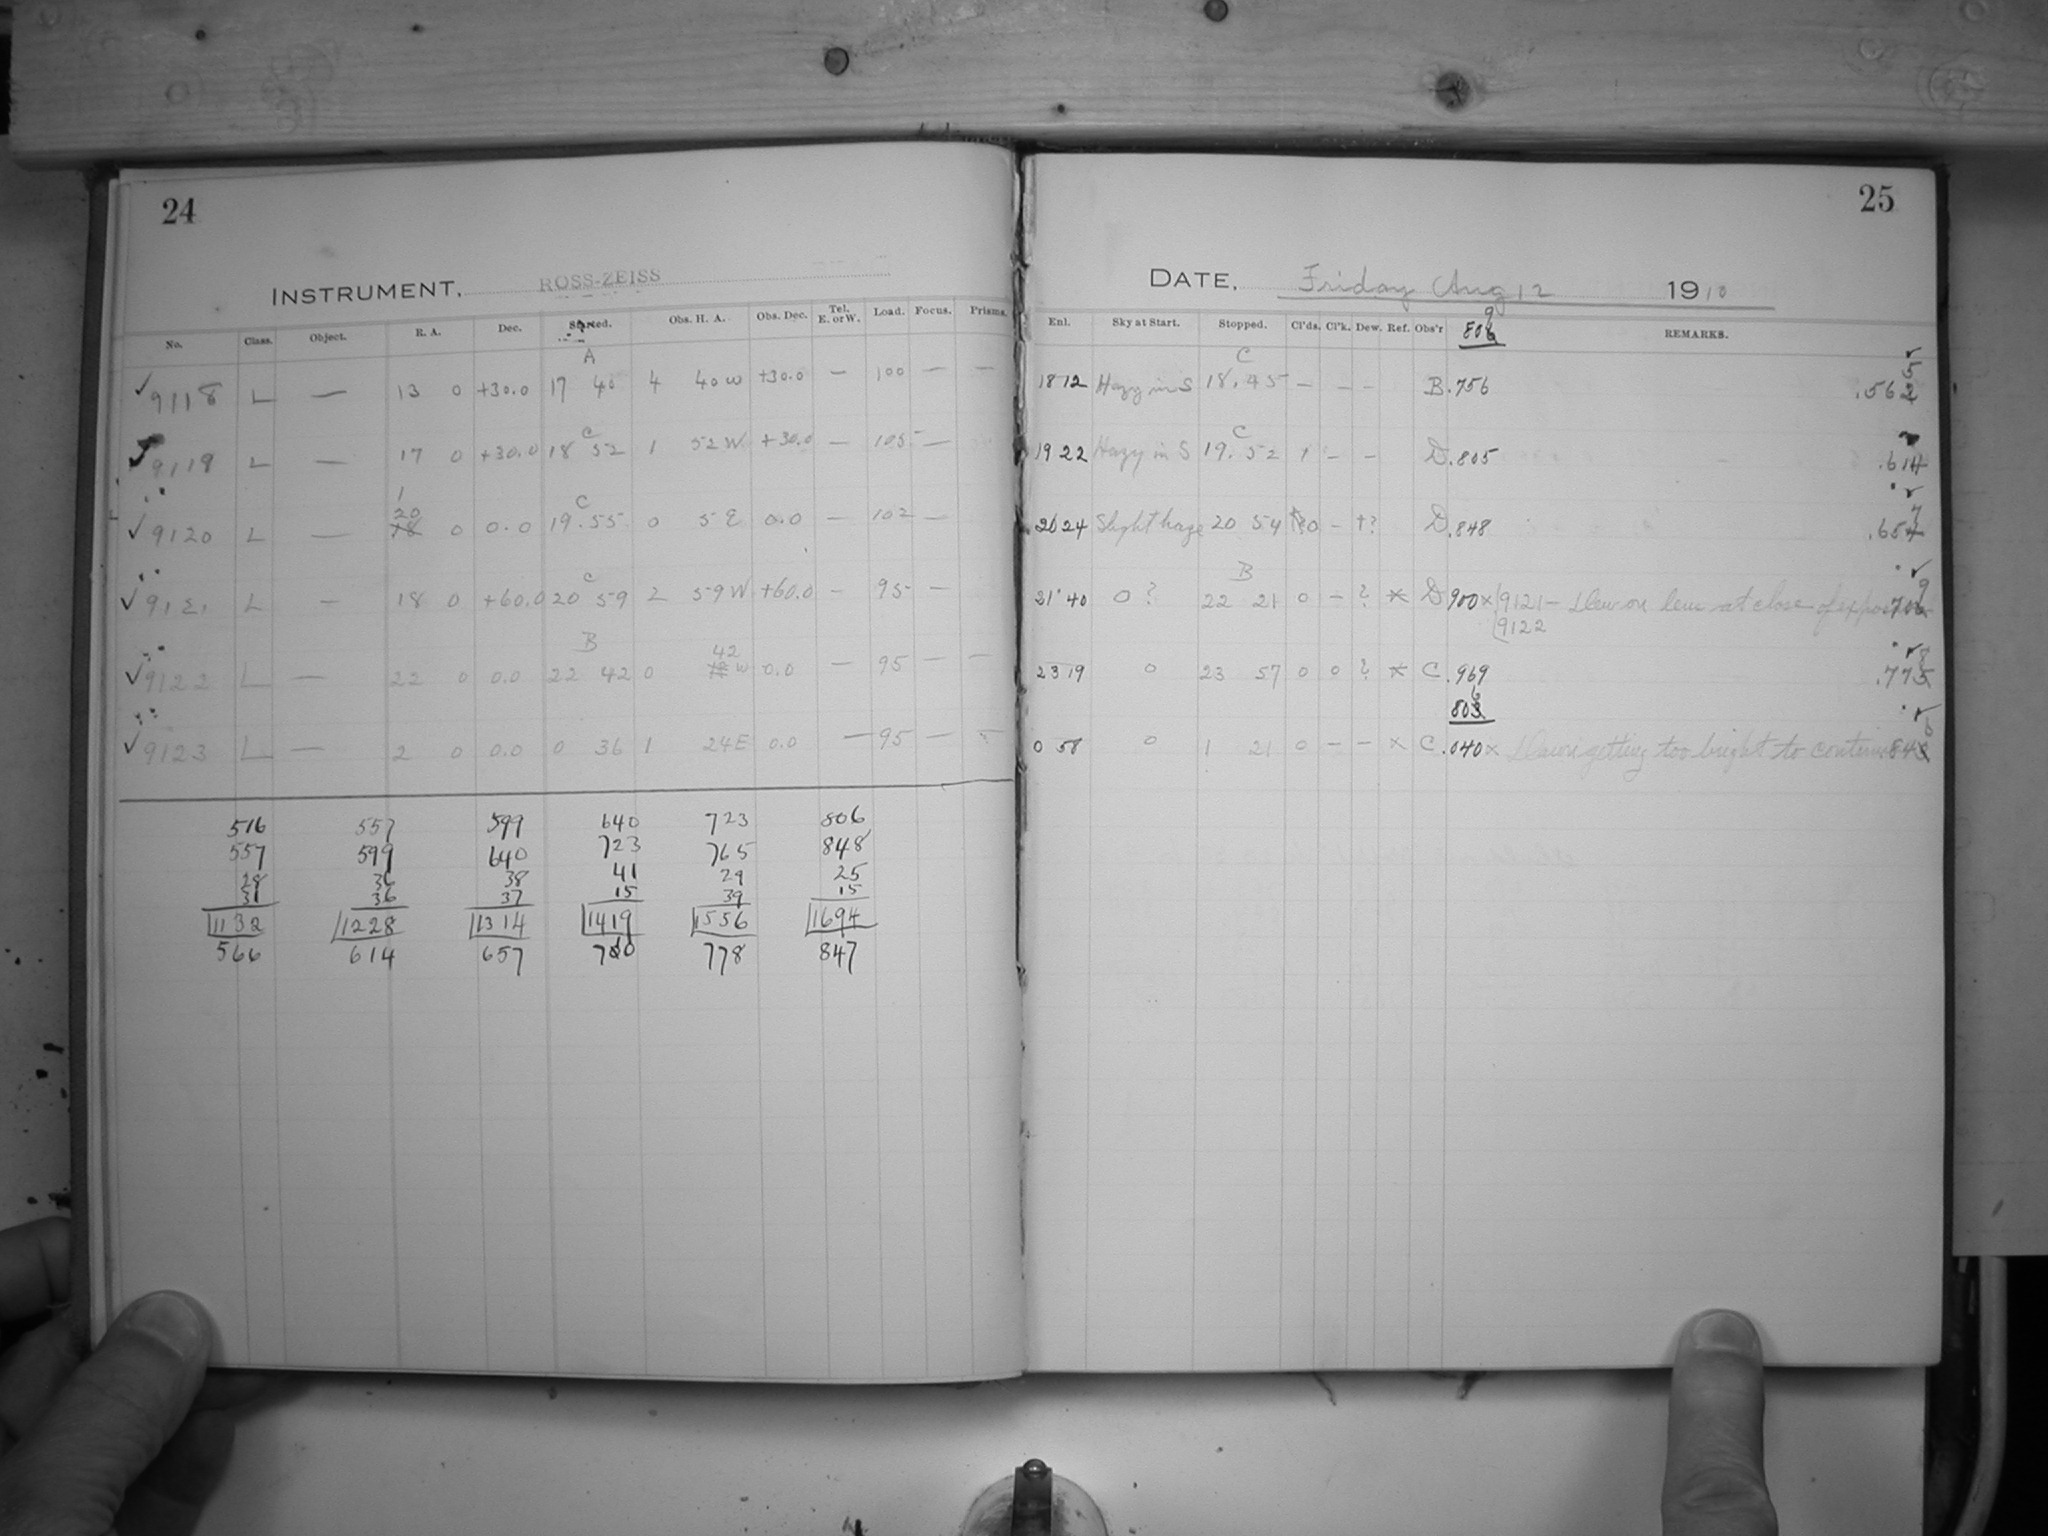 24
INSTRUMENT, ROSS-ZEISS
No. Class. Object. R. A. Dec. Started. Obs. H. A. Obs. Dec. Tel. E. or W. Load. Focus. Prisms.
A
✓ 9118 L — 13 0 +30.0 17 40 4 40 W +30.0 — 100 — —
C
9119 L — 17 0 +30.0 18 52 1 52 W +30.0 — 105 —
1
20 C
✓ 9120 L — 18 0 0.0 19.55 0 5 E 0.0 — 102 —
C
✓ 9121 L — 18 0 +60.0 20 59 2 59 W +60.0 — 95 —
B 42
✓ 9122 L — 22 0 0.0 22 42 0 W 0.0 — 95 — —
✓ 9123 L — 2 0 0.0 0 36 1 24 E 0.0 — 95 — —
516 557 599 640 723 806
557 599 640 723 765 848
28 36 38 41 29 25
31 36 37 15 39 15
1132 1228 1314 1419 1556 1694
566 614 657 710 778 847
25
DATE, Friday Aug 12 1910
9
Enl. Sky at Start. Stopped. Cl'ds. Cl'k. Dew. Ref. Obs'r 806 REMARKS.
C 5
18 12 Hazy in S 18.45 — — — B .756 .562
C
19 22 Hazy in S 19. 52 1 — — D .805 .614
7
20 24 Slight haze 20 54 0 — +? D .848 .654
B 9
21 40 0 ? 22 21 0 — ? × D 900 × 9121 — Dew on lens at close of exposure 706
9122
8
23 19 0 23 57 0 0 ? × C .969 .775
6
803
6
0 58 0 1 21 0 — — × C .040 × Dawn getting too bright to continue 843